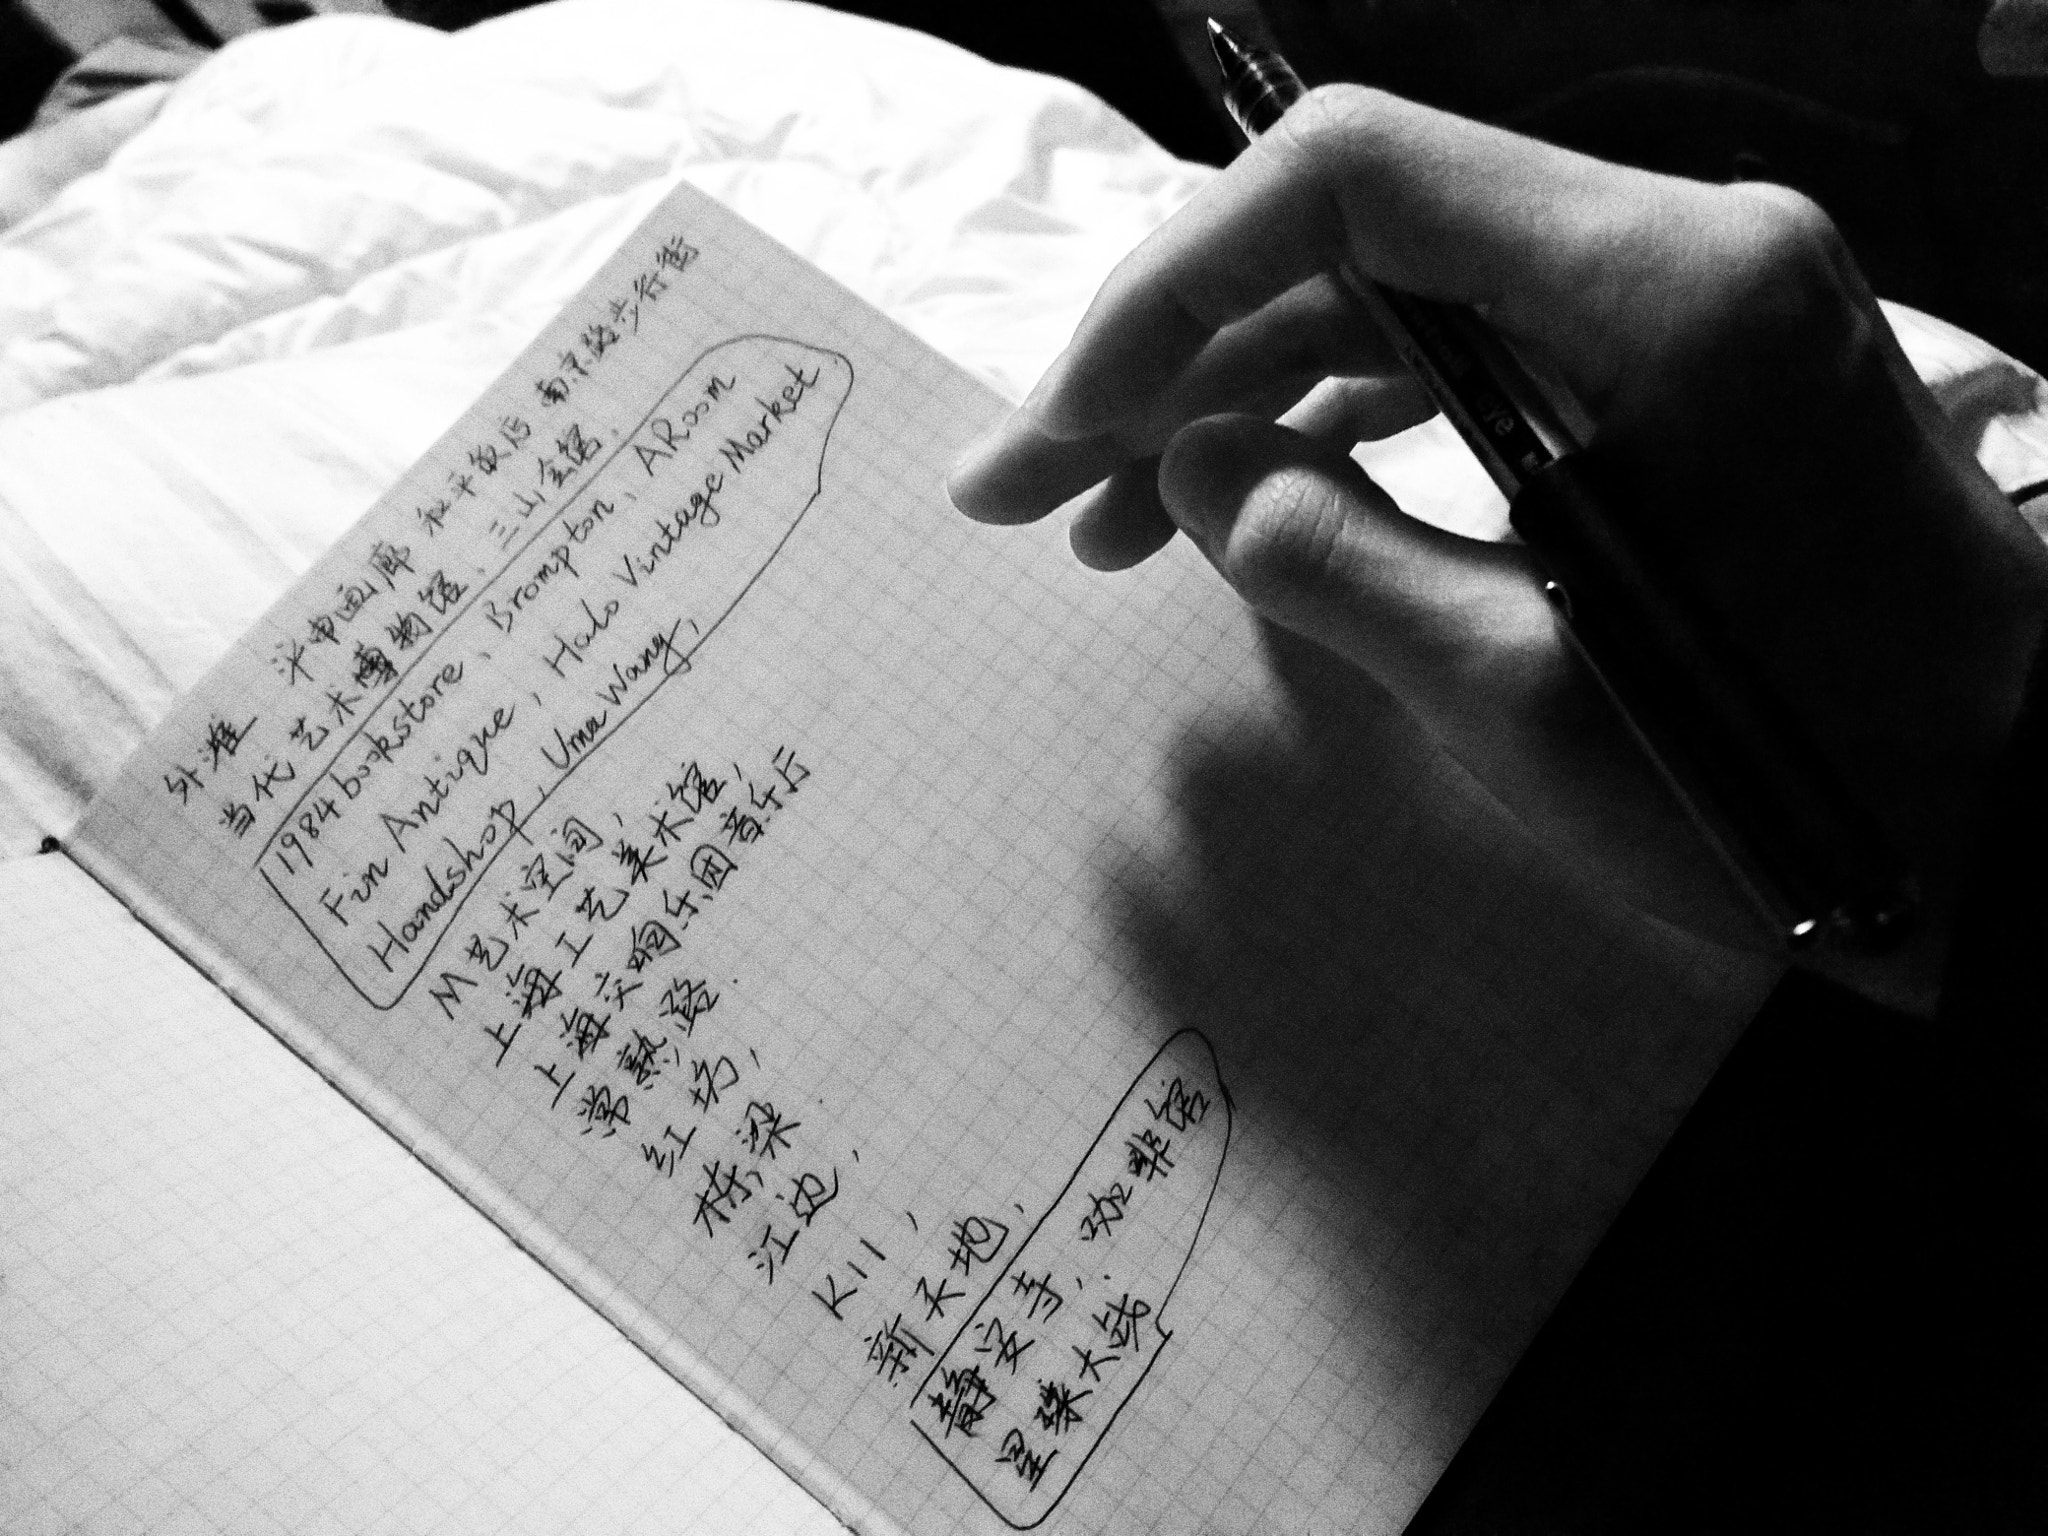 外滩 沪申画廊 和平饭店 南京路步行街
当代艺术博物馆、三山会馆.
1984 bookstore、Brompton、ARoom
Fin Antique, Halo Vintage Market
Handshop, Uma Wang,
M艺术空间,
上海工艺美术馆,
上海交响乐团音乐厅
常熟路.
红坊,
栋梁
江边,
K11,
新天地,
静安寺, 咖啡馆
星球大战
eye